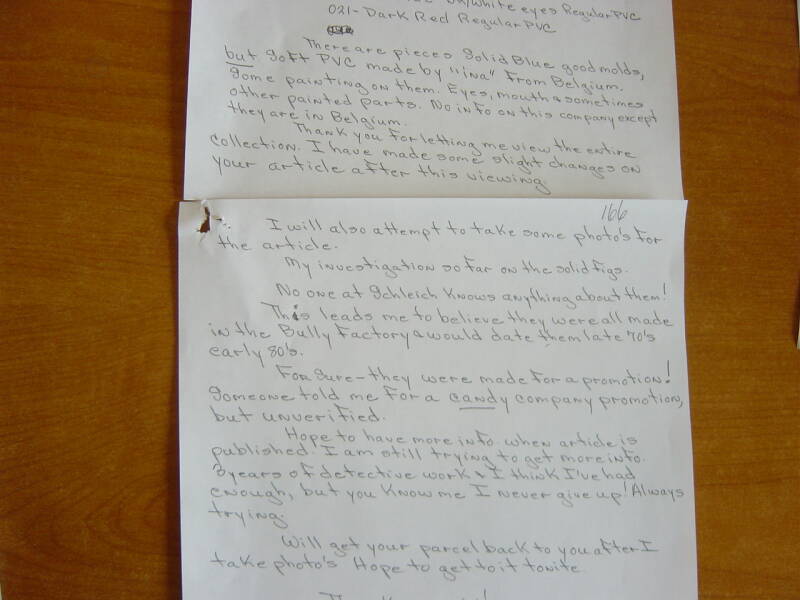 w/white eyes Regular PVC
021-Dark Red Regular PVC
There are pieces Solid Blue good molds,
but soft PVC made by "ina" from Belgium.
Some painting on them. Eyes, mouth & sometimes
other painted parts. No info on this company except
they are in Belgium.
Thank you for letting me view the entire
collection. I have made some slight changes on
your article after this viewing.
166
I will also attempt to take some photo's for
the article.
My investigation so far on the solid figs.
No one at Schleich knows anything about them!
This leads me to believe they were all made
in the Bully Factory & would date them late 70's
early 80's.
For sure - they were made for a promotion!
Someone told me for a candy company promotion,
but unverified.
Hope to have more info when article is
published. I am still trying to get more info.
3 years of detective work & I think I've had
enough, but you know me I never give up! Always
trying.
Will get your parcel back to you after I
take photo's Hope to get to it tonite.